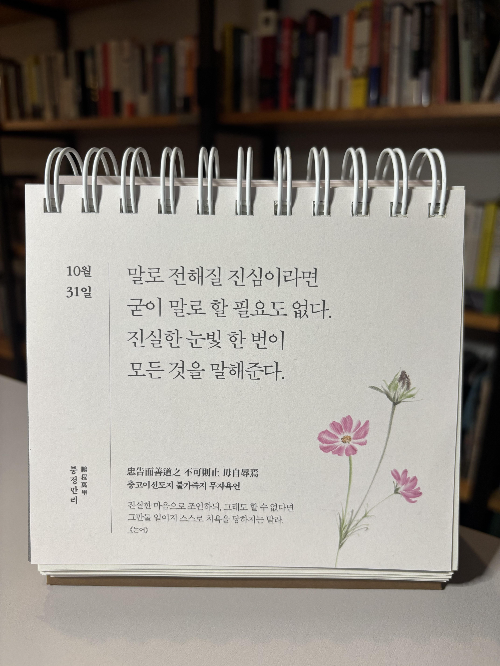 10월
31일
말로 전해질 진심이라면
굳이 말로 할 필요도 없다.
진실한 눈빛 한 번이
모든 것을 말해준다.
붕정만리
鵬程萬里
忠告而善道之 不可則止 毋自辱焉
충고이선도지 불가즉지 무자욕언
진실한 마음으로 조언하되, 그래도 할 수 없다면
그만둘 일이지 스스로 치욕을 당하지는 말라.
《논어》